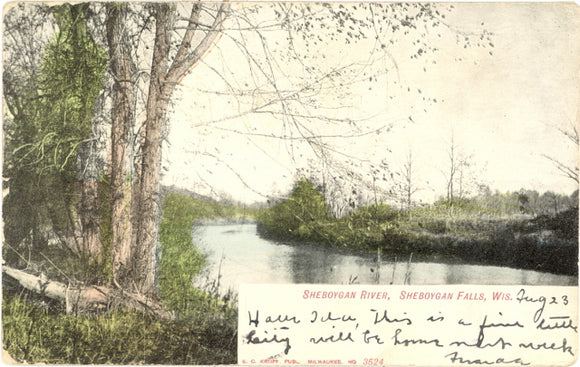 SHEBOYGAN RIVER, SHEBOYGAN FALLS, WIS. Aug 23
Ida, This is a fine little
City will be home next week
E. C. KROPP PUBL. MILWAUKEE. NO 3524